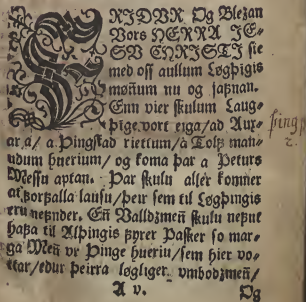 FRIDVR Og Blezan
Vors HERRA JE-
SV CHRISTI sie
med oss aullum Løgþigis
mønum nu og jafnan.
Enn vier skulum Laug-
þige vort eiga/ad Auxar
ar á/ a Þingstad riettum/á Tolf man-
udum hueriun/ og koma þar a Peturs
Messu aptan. Þar skulu aller komner
at forfalla lausu/þeir sem til Løgþungis
eru nefnder. Eñ Valldzmeñ skulu nefne
hafa til Alþingis fyrer Pasker so mar-
ga Meñ vr Þinge hueriu/sem hier vo-
ttar/edur þeirra løgliger vmbodzmeñ/
A v. Og
þing